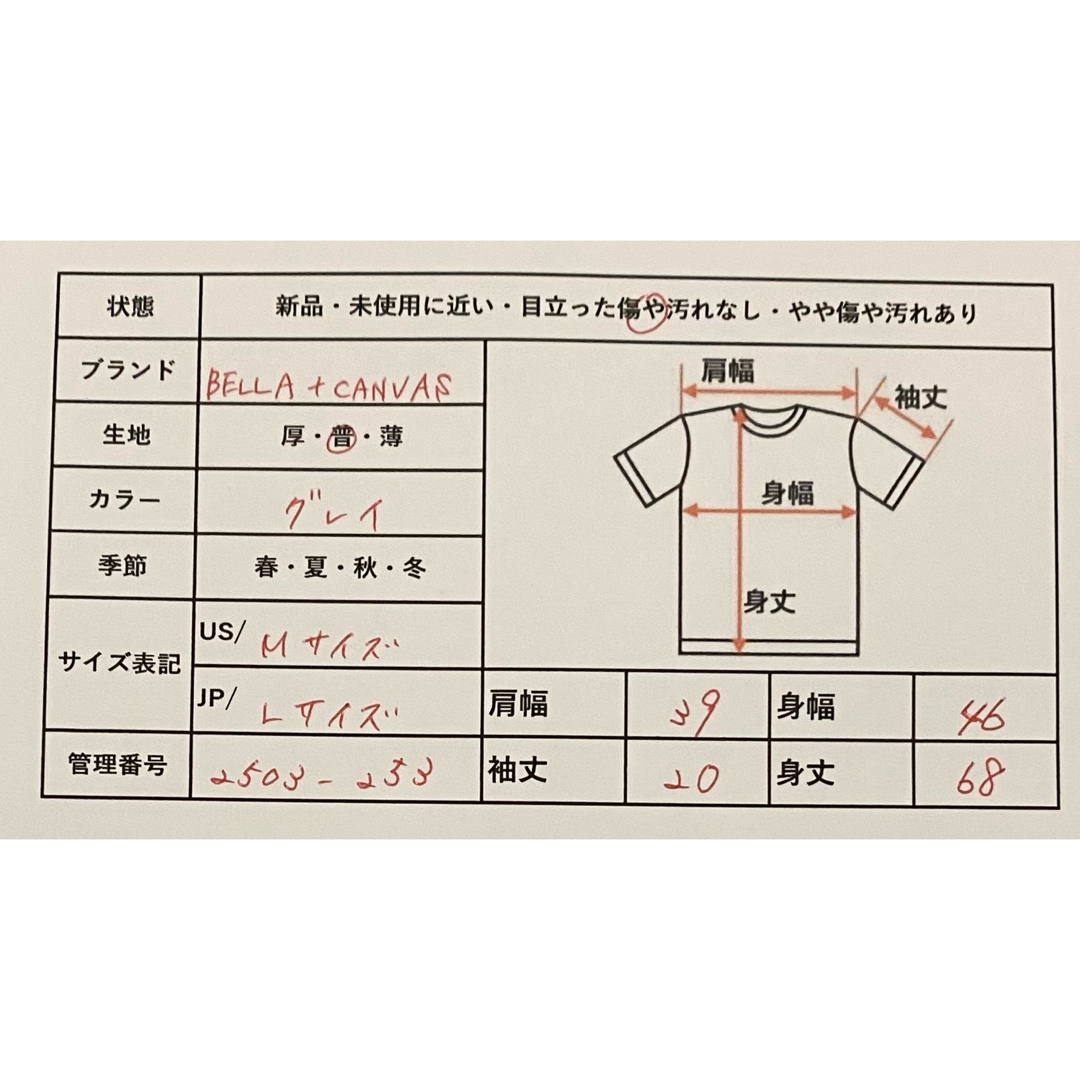 状態 新品・未使用に近い・目立った傷や汚れなし・やや傷や汚れあり
ブランド BELLA + CANVAS
生地 厚・普・薄
カラー グレイ
季節 春・夏・秋・冬
サイズ表記 US/ Mサイズ
JP/ Lサイズ
管理番号 2503-253
肩幅
袖丈
身幅
身丈
肩幅 39 身幅 46
袖丈 20 身丈 68